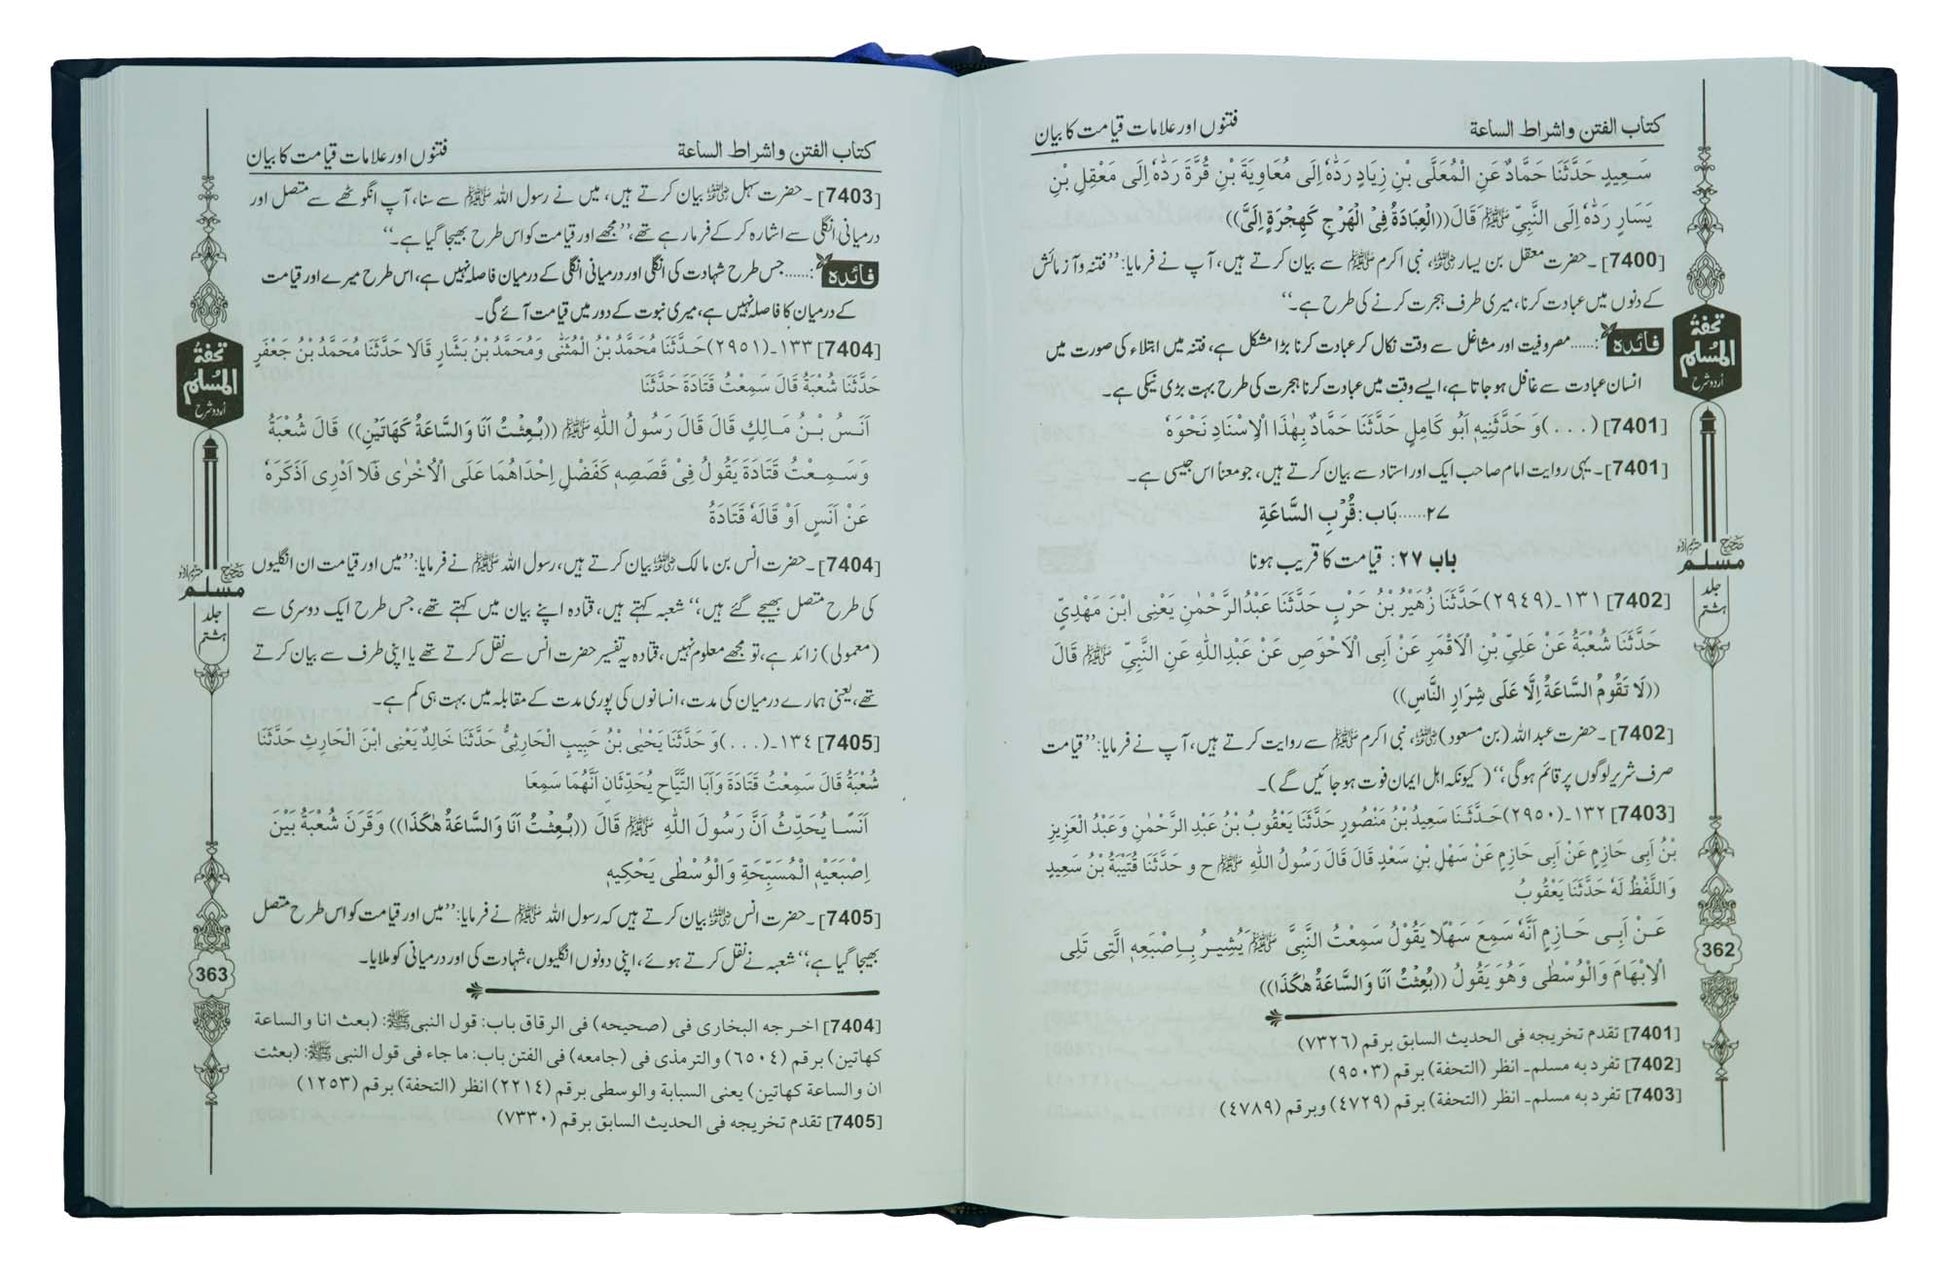 كتاب الفتن واشراط الساعة
فتنوں اور علامات قیامت کا بیان
سَعِيدٍ حَدَّثَنَا حَمَّادٌ عَنِ الْمُعَلَّى بْنِ زِيَادٍ رَدَّهُ إِلَى مُعَاوِيَةَ بْنِ قُرَّةَ رَدَّهُ إِلَى مَعْقِلِ بْنِ
يَسَارٍ رَدَّهُ إِلَى النَّبِيِّ ﷺ قَالَ ((الْعِبَادَةُ فِيْ الْهَرْجِ كَهِجْرَةٍ إِلَيَّ))
[7400]۔ حضرت معقل بن یسار رضی اللہ عنہ، نبی اکرم ﷺ سے بیان کرتے ہیں، آپ نے فرمایا: ’’فتنہ و آزمائش
کے دنوں میں عبادت کرنا، میری طرف ہجرت کرنے کی طرح ہے۔‘‘
فائدہ: ...... مصروفیت اور مشاغل سے وقت نکال کر عبادت کرنا بڑا مشکل ہے، فتنہ میں ابتلاء کی صورت میں
انسان عبادت سے غافل ہو جاتا ہے، ایسے وقت میں عبادت کرنا ہجرت کی طرح بہت بڑی نیکی ہے۔
[7401] (...) وَ حَدَّثَنِيهِ أَبُو كَامِلٍ حَدَّثَنَا حَمَّادٌ بِهٰذَا الْإِسْنَادِ نَحْوَهُ
[7401]۔ یہی روایت امام صاحب ایک اور استاد سے بیان کرتے ہیں، جو معناً اس جیسی ہے۔
٢٧...... بَاب: قُرْبِ السَّاعَةِ
باب ٢٧: قیامت کا قریب ہونا
[7402] ١٣١۔(٢٩٤٩) حَدَّثَنَا زُهَيْرُ بْنُ حَرْبٍ حَدَّثَنَا عَبْدُ الرَّحْمٰنِ يَعْنِى ابْنَ مَهْدِيٍّ
حَدَّثَنَا شُعْبَةُ عَنْ عَلِيِّ بْنِ الْأَقْمَرِ عَنْ أَبِى الْأَحْوَصِ عَنْ عَبْدِ اللّٰهِ عَنِ النَّبِيِّ ﷺ قَالَ
((لَا تَقُومُ السَّاعَةُ إِلَّا عَلَى شِرَارِ النَّاسِ))
[7402]۔ حضرت عبد اللہ (بن مسعود) رضی اللہ عنہ، نبی اکرم ﷺ سے روایت کرتے ہیں، آپ نے فرمایا: ’’قیامت
صرف شریر لوگوں پر قائم ہو گی،‘‘ (کیونکہ اہل ایمان فوت ہو جائیں گے)۔
[7403] ١٣٢۔(٢٩٥٠) حَدَّثَنَا سَعِيدُ بْنُ مَنْصُورٍ حَدَّثَنَا يَعْقُوبُ بْنُ عَبْدِ الرَّحْمٰنِ وَعَبْدُ الْعَزِيزِ
بْنُ أَبِى حَازِمٍ عَنْ أَبِى حَازِمٍ عَنْ سَهْلِ بْنِ سَعْدٍ قَالَ قَالَ رَسُولُ اللّٰهِ ﷺ ح و حَدَّثَنَا قُتَيْبَةُ بْنُ سَعِيدٍ
وَاللَّفْظُ لَهُ حَدَّثَنَا يَعْقُوبُ
عَنْ أَبِى حَازِمٍ أَنَّهُ سَمِعَ سَهْلًا يَقُوْلُ سَمِعْتُ النَّبِيَّ ﷺ يُشِيرُ بِإِصْبَعِهِ الَّتِى تَلِى
الْإِبْهَامَ وَالْوُسْطٰى وَهُوَ يَقُولُ ((بُعِثْتُ أَنَا وَالسَّاعَةُ هٰكَذَا))
[7401] تقدم تخريجه فى الحديث السابق برقم (٧٣٢٦)
[7402] تفرد به مسلم۔ انظر (التحفة) برقم (٩٥٠٣)
[7403] تفرد به مسلم۔ انظر (التحفة) برقم (٤٧٢٩) وبرقم (٤٧٨٩)
تحفة
المسلم
اردو شرح
صحیح
مسلم
جلد
ہشتم
362
كتاب الفتن واشراط الساعة
فتنوں اور علامات قیامت کا بیان
[7403]۔ حضرت سہل رضی اللہ عنہ بیان کرتے ہیں، میں نے رسول اللہ ﷺ سے سنا، آپ انگوٹھے سے متصل اور
درمیانی انگلی سے اشارہ کر کے فرما رہے تھے، ’’مجھے اور قیامت کو اس طرح بھیجا گیا ہے۔‘‘
فائدہ: ...... جس طرح شہادت کی انگلی اور درمیانی انگلی کے درمیان فاصلہ نہیں ہے، اس طرح میرے اور قیامت
کے درمیان کا فاصلہ نہیں ہے، میری نبوت کے دور میں قیامت آئے گی۔
[7404] ١٣٣۔(٢٩٥١) حَدَّثَنَا مُحَمَّدُ بْنُ الْمُثَنّٰى وَمُحَمَّدُ بْنُ بَشَّارٍ قَالَا حَدَّثَنَا مُحَمَّدُ بْنُ جَعْفَرٍ
حَدَّثَنَا شُعْبَةُ قَالَ سَمِعْتُ قَتَادَةَ حَدَّثَنَا
أَنَسُ بْنُ مَالِكٍ قَالَ قَالَ رَسُولُ اللّٰهِ ﷺ ((بُعِثْتُ أَنَا وَالسَّاعَةُ كَهَاتَيْنِ)) قَالَ شُعْبَةُ
وَ سَمِعْتُ قَتَادَةَ يَقُولُ فِيْ قَصَصِهِ كَفَضْلِ إِحْدَاهُمَا عَلَى الْأُخْرٰى فَلَا أَدْرِى أَذَكَرَهُ
عَنْ أَنَسٍ أَوْ قَالَهُ قَتَادَةُ
[7404]۔ حضرت انس بن مالک رضی اللہ عنہ بیان کرتے ہیں، رسول اللہ ﷺ نے فرمایا: ’’میں اور قیامت ان انگلیوں
کی طرح متصل بھیجے گئے ہیں،‘‘ شعبہ کہتے ہیں، قتادہ اپنے بیان میں کہتے تھے، جس طرح ایک دوسری سے
(معمولی) زائد ہے، تو مجھے معلوم نہیں، قتادہ یہ تفسیر حضرت انس سے نقل کرتے تھے یا اپنی طرف سے بیان کرتے
تھے، یعنی ہمارے درمیان کی مدت، انسانوں کی پوری مدت کے مقابلہ میں بہت ہی کم ہے۔
[7405] ١٣٤۔(...) وَ حَدَّثَنَا يَحْيٰى بْنُ حَبِيبٍ الْحَارِثِيُّ حَدَّثَنَا خَالِدٌ يَعْنِى ابْنَ الْحَارِثِ حَدَّثَنَا
شُعْبَةُ قَالَ سَمِعْتُ قَتَادَةَ وَأَبَا التَّيَّاحِ يُحَدِّثَانِ أَنَّهُمَا سَمِعَا
أَنَسًا يُحَدِّثُ أَنَّ رَسُولَ اللّٰهِ ﷺ قَالَ ((بُعِثْتُ أَنَا وَالسَّاعَةُ هٰكَذَا)) وَقَرَنَ شُعْبَةُ بَيْنَ
إِصْبَعَيْهِ الْمُسَبِّحَةِ وَالْوُسْطٰى يَحْكِيهِ
[7405]۔ حضرت انس رضی اللہ عنہ بیان کرتے ہیں کہ رسول اللہ ﷺ نے فرمایا: ’’میں اور قیامت کو اس طرح متصل
بھیجا گیا ہے،‘‘ شعبہ نے نقل کرتے ہوئے، اپنی دونوں انگلیوں، شہادت کی اور درمیانی کو ملایا۔
[7404] اخرجه البخارى فى (صحيحه) فى الرقاق باب: قول النبى ﷺ: (بعث انا والساعة
كهاتين) برقم (٦٥٠٤) والترمذى فى (جامعه) فى الفتن باب: ما جاء فى قول النبى ﷺ: (بعثت
ان والساعة كهاتين) يعنى السبابة والوسطى برقم (٢٢١٤) انظر (التحفة) برقم (١٢٥٣)
[7405] تقدم تخريجه فى الحديث السابق برقم (٧٣٣٠)
تحفة
المسلم
اردو شرح
صحیح
مسلم
جلد
ہشتم
363